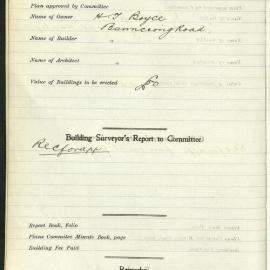 Plan approved by Committee
Name of Owner H T Boyce
Bunnerong Road
Name of Builder "
Name of Architect "
Value of Buildings to be erected
Building Surveyor's Report to Committee
Rec for app
Report Book, Folio
Plans Committee Minute Book, page
Building Fee Paid
Remarks